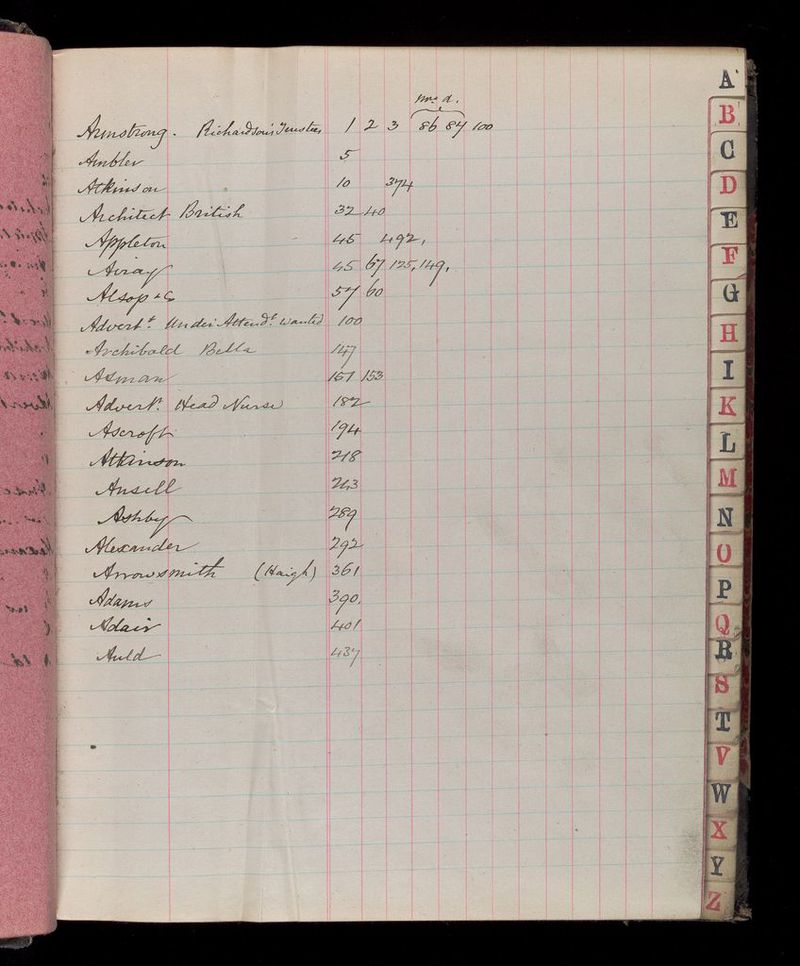 A
B
C
D
E
F
G
H
I
K
L
M
N
O
P
Q
R
S
T
V
W
X
Y
Z
Armstrong. Richardson's Trustees 1 2 3 86 87 100
Ambler 5
Atkinson 10 374
Architect British 32 40
Appleton 45 492,
Airay 45 67 125, 149,
Alsop & Co 57 60
Advert. Under Attendt. Wanted 100
Archibald Bella 147
Asman 153
Advert. Head Nurse 182
Ascroft 194
Atkinson 218
Ansell 243
Ashby 289
Alexander 292
Arrowsmith (Haigh) 361
Adams 390.
Adair 401
Auld 437